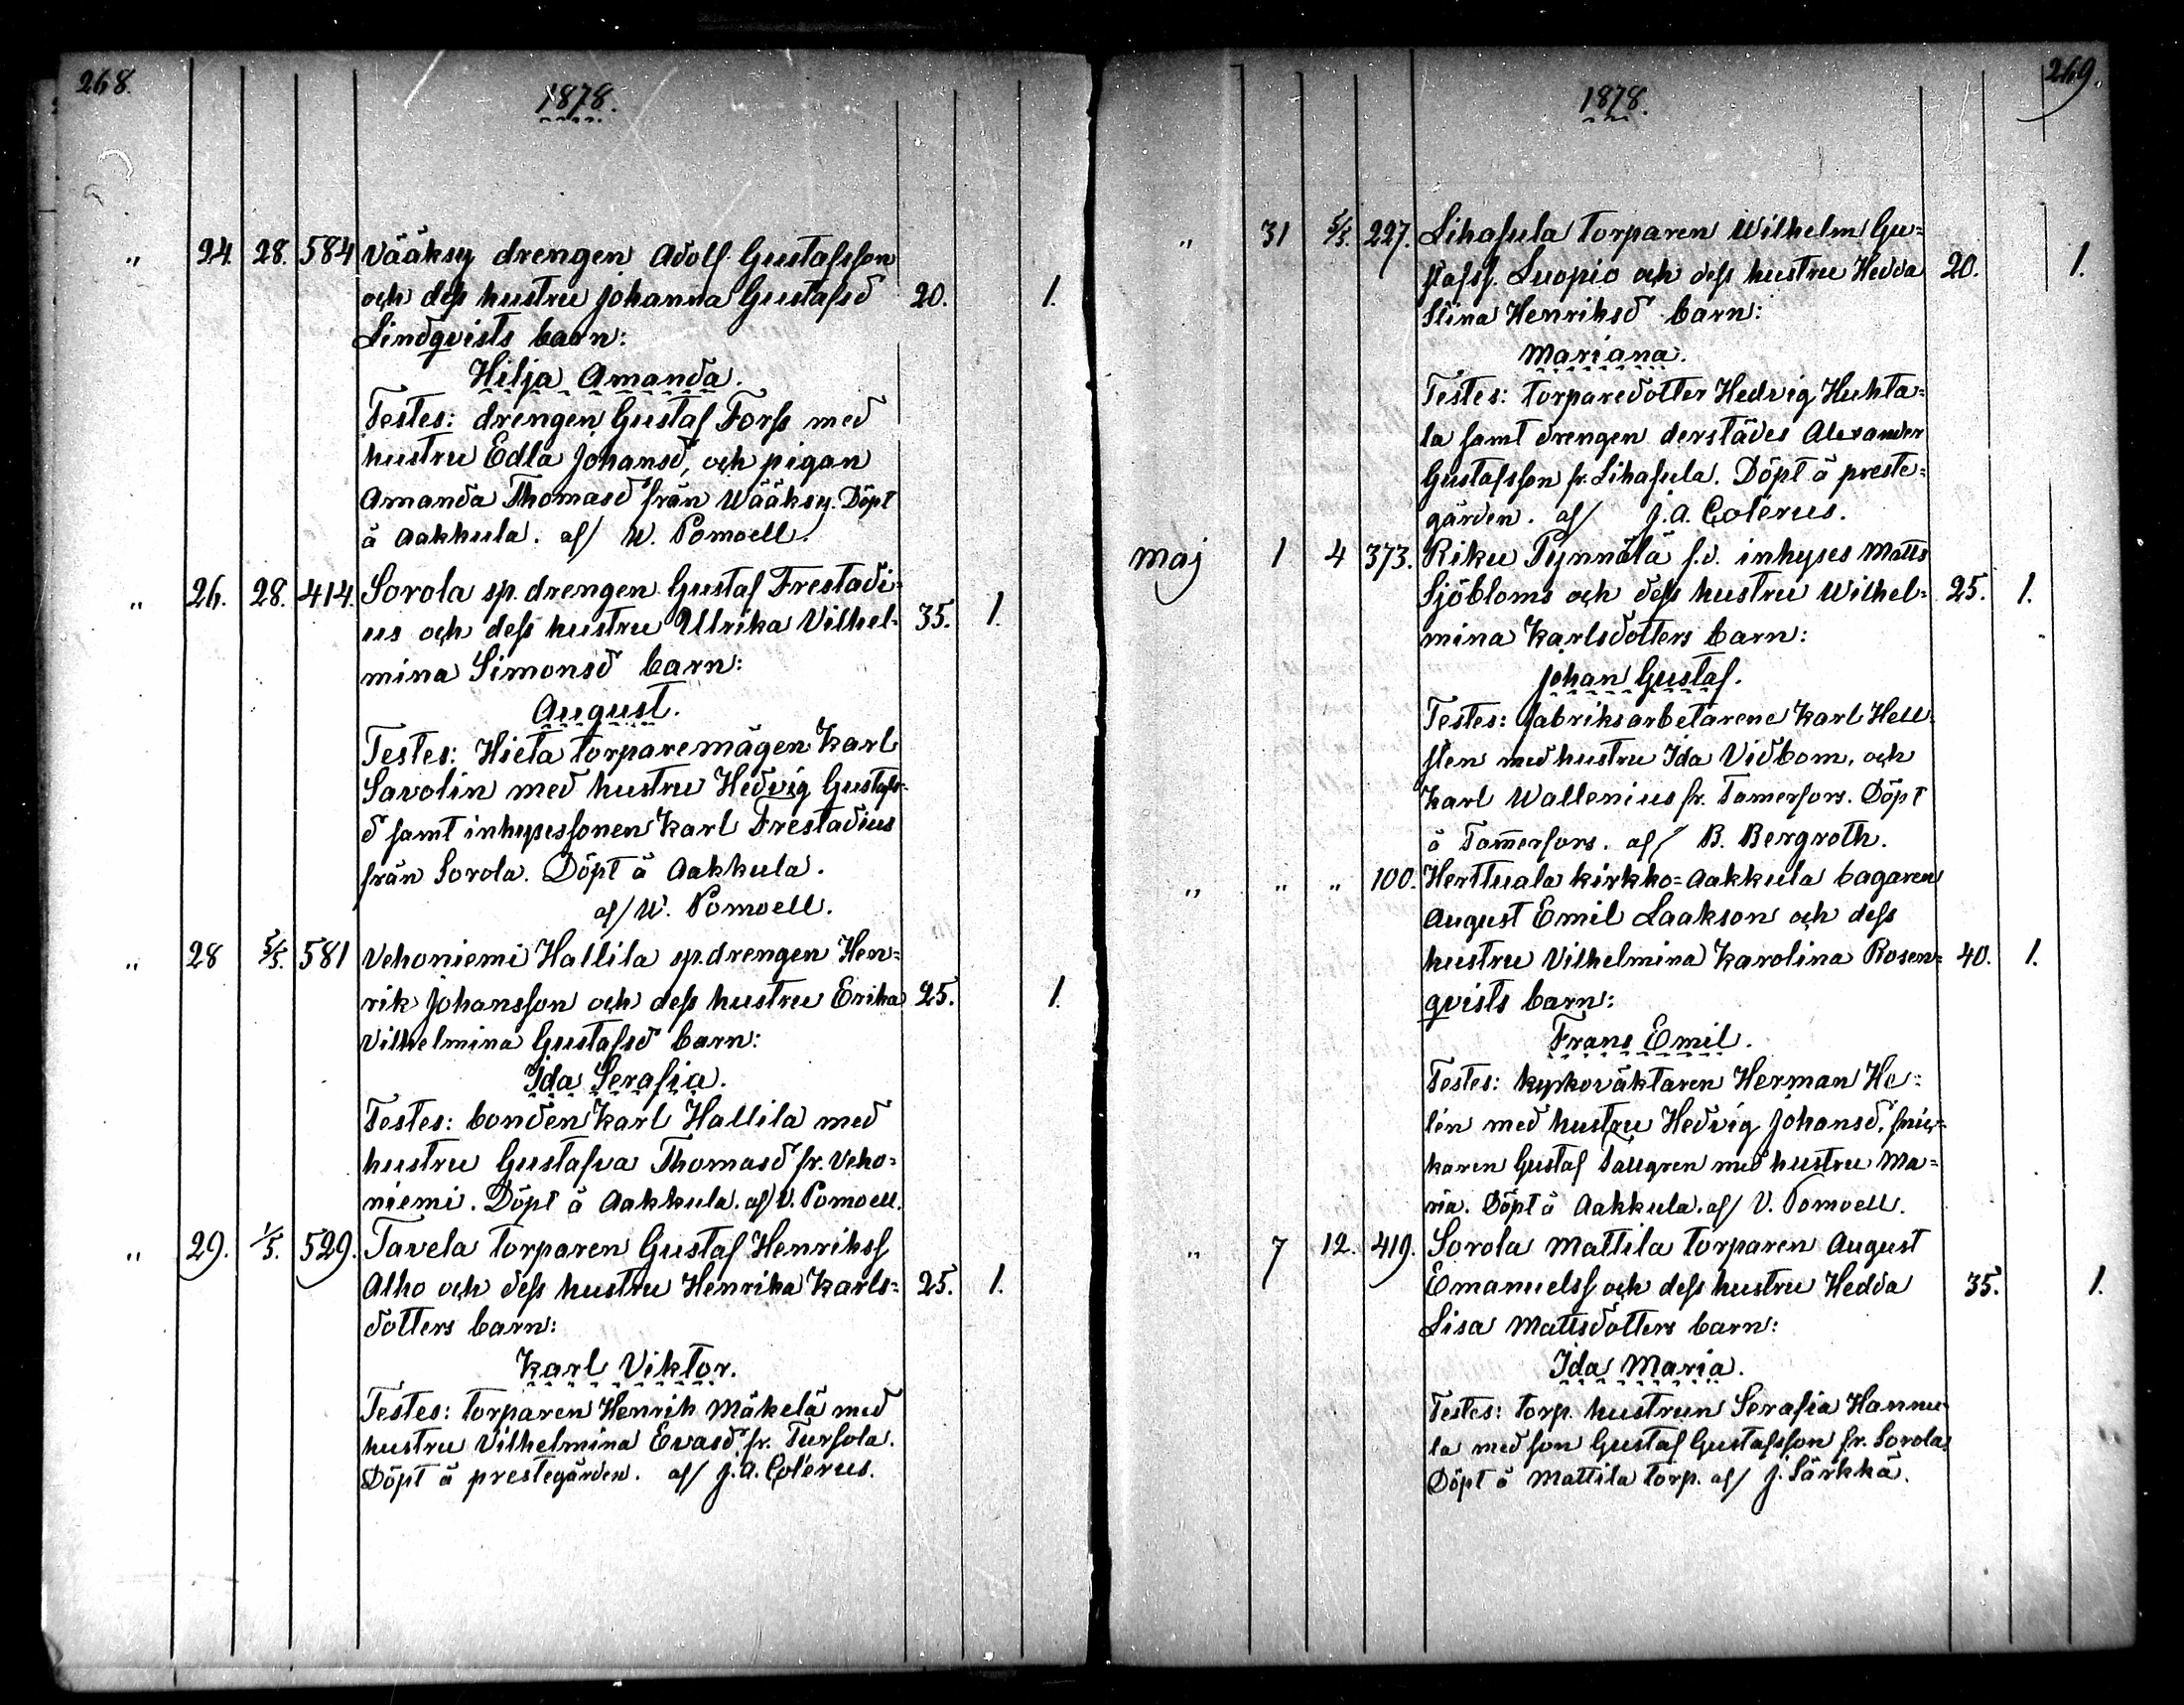 268.
1878.
" 24. 28. 584 Vääksy drengen Adolf Gustafsson
och dess hustru Johanna Gustafsd 20. 1.
Lindqvists barn:
Hilja Amanda.
Testes: drengen Gustaf Forss med
hustru Edla Johansd, och pigan
Amanda Thomasd från Wääksy. Döpt
å Aakkula. af/ W. Pomoell.
" 26. 28. 414. Sorola sp. drengen Gustaf Frestadi=
us och dess hustru Ullrika Vilhel= 35. 1.
mina Simonsd barn:
August.
Testes: Hieta torparemågen Karl
Savolin med hustru Hedvig Gustafs=
d samt inhysessonen Karl Frestadius
från Sorola. Döpt å Aakkula.
af/ W. Pomoell.
" 28 5/5. 581 Vehoniemi Hallila sp. drengen Hen=
rik Johansson och dess hustru Erika 25. 1.
Vilhelmina Gustafsd barn:
Ida Serafia.
Testes: bonden Karl Hallila med
hustru Gustafva Thomasd fr. Veho=
niemi. Döpt å Aakkula. af/ V. Pomoell.
" 29. 1/5. 529. Tavela torparen Gustaf Henrikss
Alho och dess hustru Henrika Karls= 25. 1.
dotters barn:
Karl Viktor.
Testes: torparen Henrik Mäkelä med
hustru Vilhelmina Evasd fr. Tursola.
Döpt å prestegården. af/ J. A. Colérus.
269.
1878.
" 31 5/5. 227. Lihasula torparen Wilhelm Gu=
stafss. Luopio och dess hustru Hedda 20. 1.
Stina Henriksd barn:
Mariana.
Testes: torparedotter Hedvig Huhta=
la samt drengen derstädes Alexander
Gustafsson fr. Lihasula. Döpt å preste=
gården. af/ J. A. Colérus.
Maj 1 4 373. Riku Pynnölä f.d. inhyses Matts
Sjöbloms och dess hustru Wilhel= 25. 1.
mina Karlsdotters barn:
Johan Gustaf.
Testes: fabriksarbetarene Karl Hell=
sten med hustru Ida Vidbom, och
Karl Wallenius fr. Tamerfors. Döpt
å Tam̄erfors. af/ B. Bergroth.
" " " 100. Herttuala kirkko=Aakkula bagaren
August Emil Laakson och dess
hustru Vilhelmina Karolina Rosen= 40. 1.
qvists barn:
Frans Emil.
Testes: kyrkoväktaren Herman He=
lén med hustru Hedvig Johansd,
karen Gustaf med hustru Ma=
ria. Döpt å Aakkula. af/ V. Pomoell.
" 7 12. 419. Sorola Mattila torparen August
Emanuelss och dess hustru Hedda 35. 1.
Lisa Mattsdotters barn:
Ida Maria.
Testes: torp. hustrun Serafia Hannu=
la med son Gustaf Gustafsson fr. Sorola
Döpt å Mattila torp. af/ J. Särkkä.